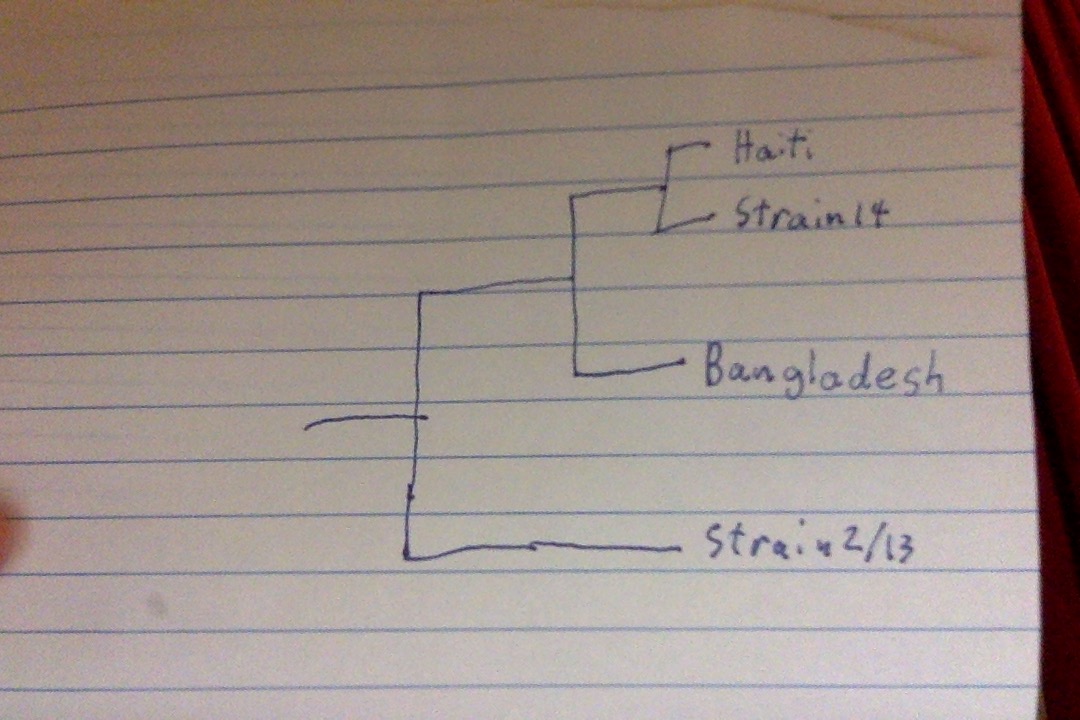 Haiti
Strain 14
Bangladesh
Strain 2/13